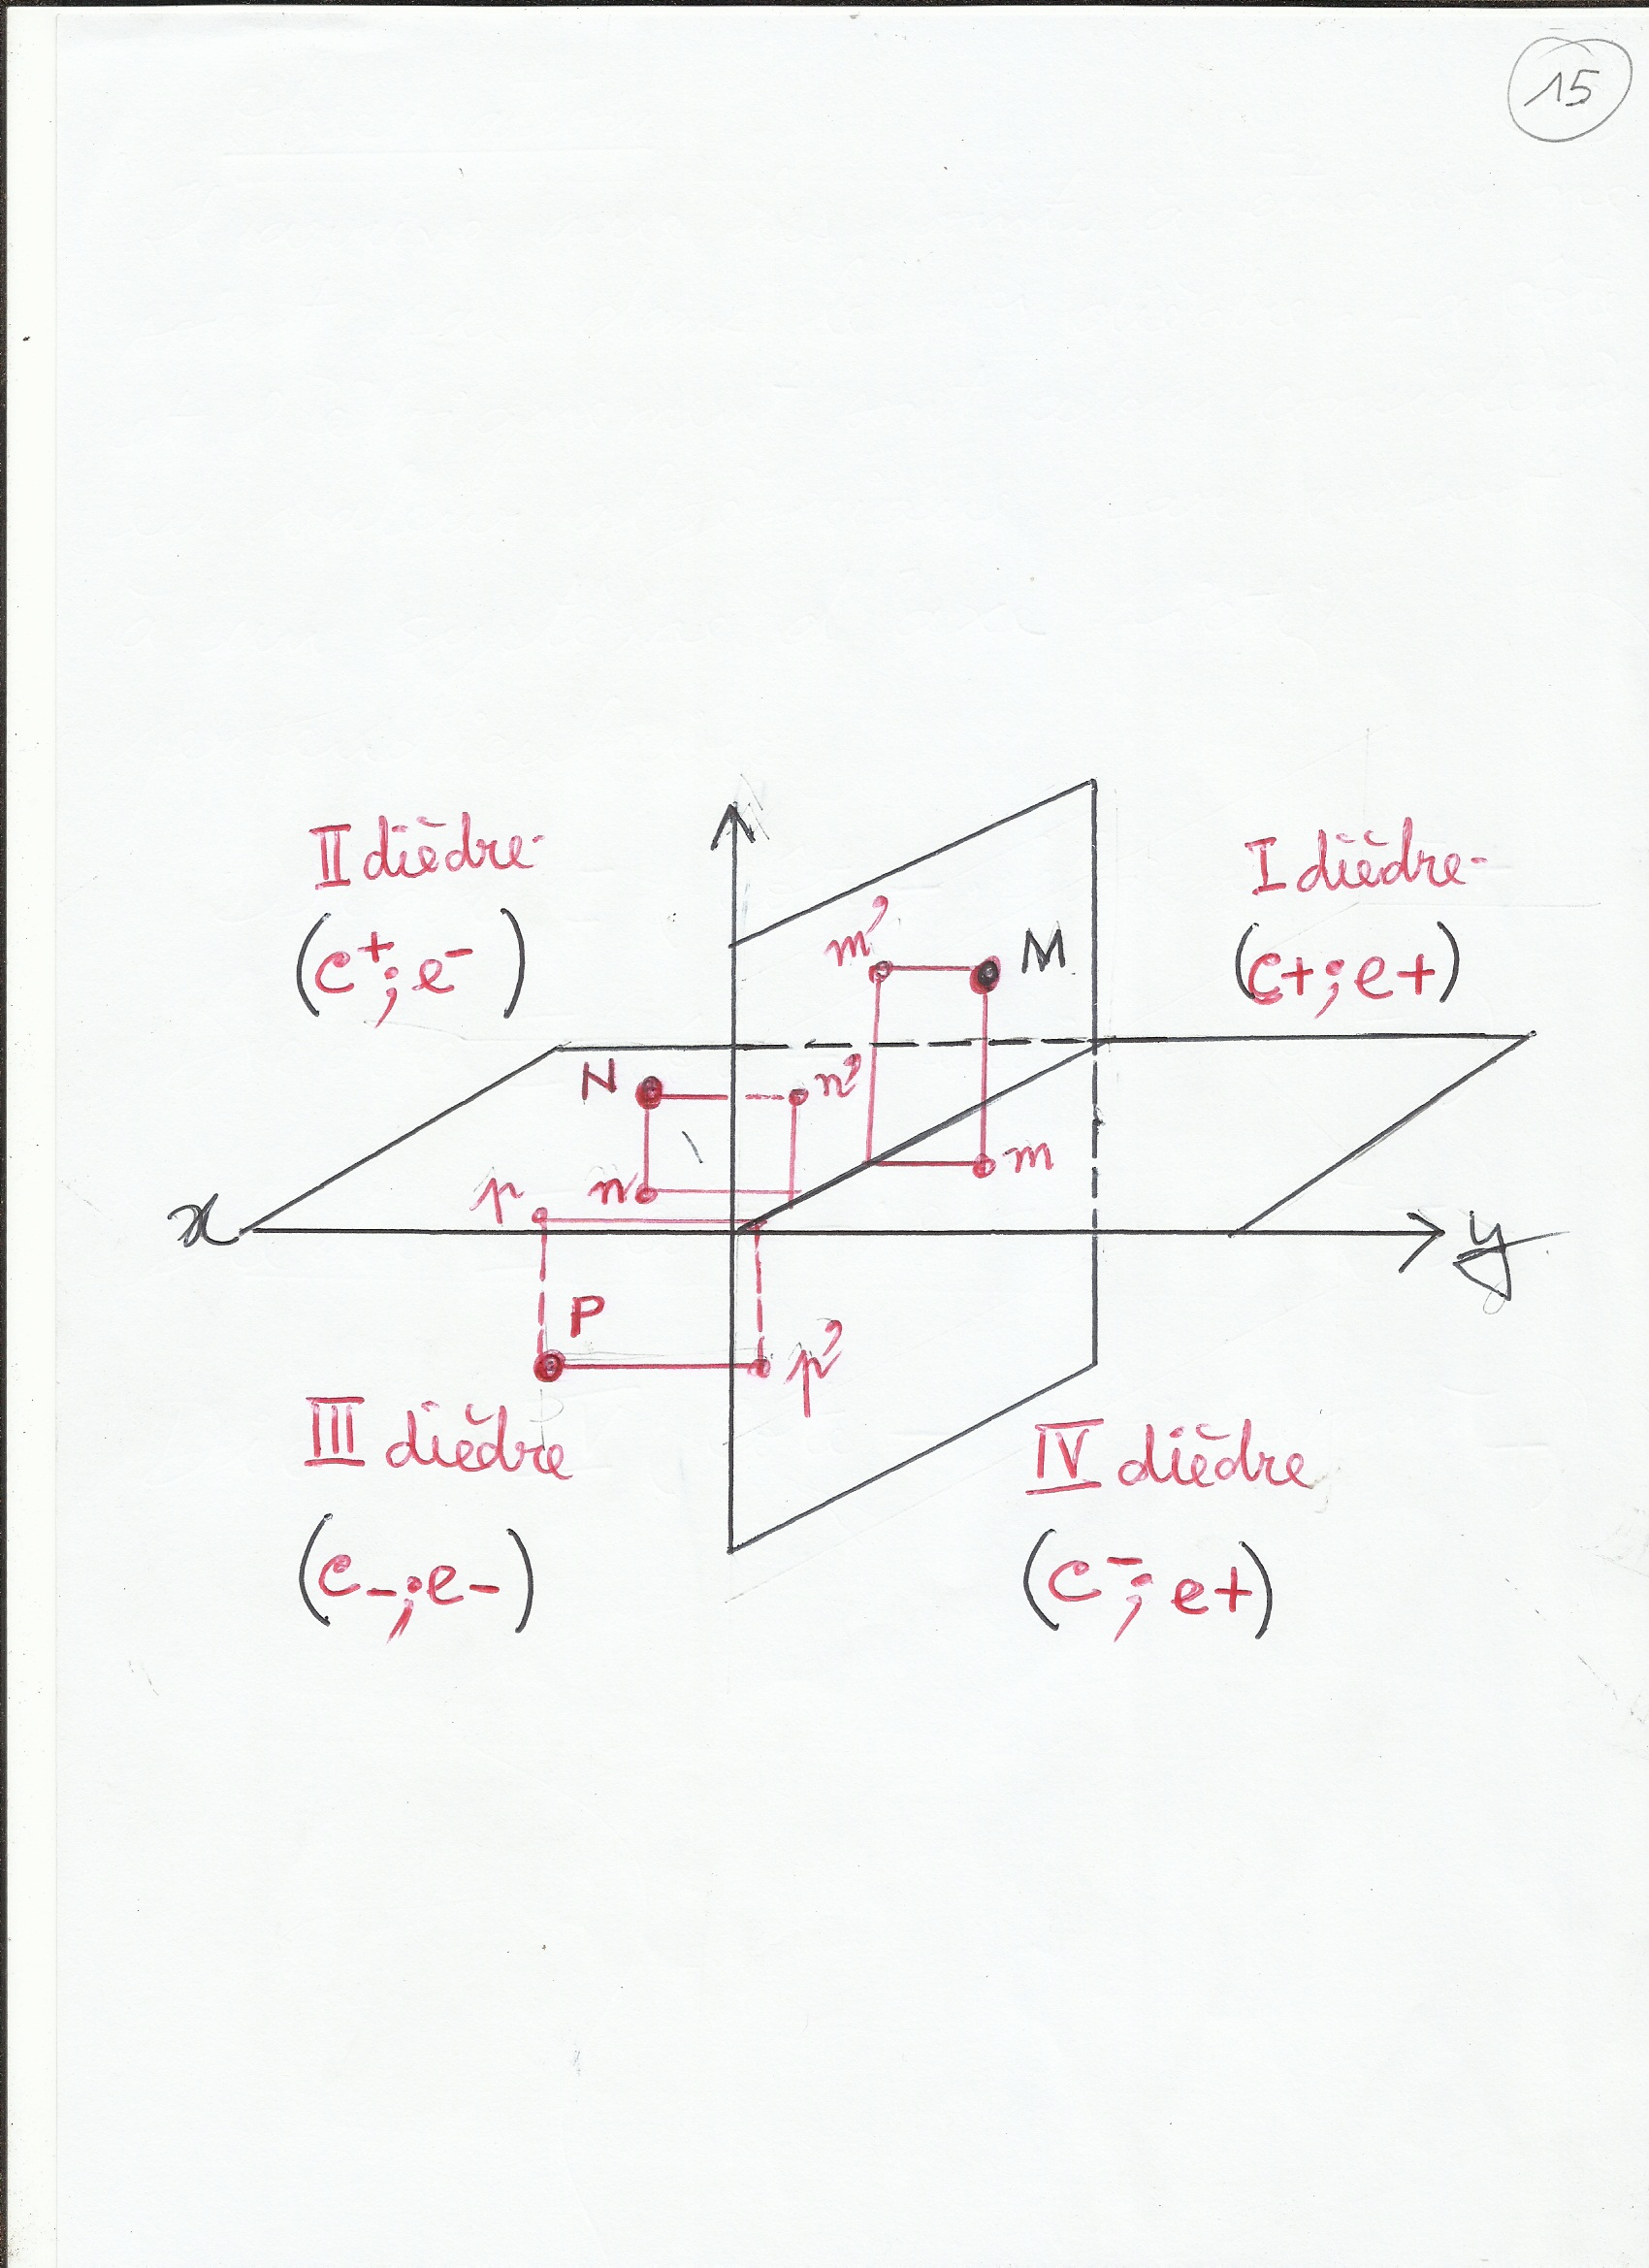 15
II dièdre
(c+; e-)
I dièdre
(c+; e+)
m'
M
N
n'
n
m
p
x
y
P
p'
III dièdre
(c-; e-)
IV dièdre
(c-; e+)